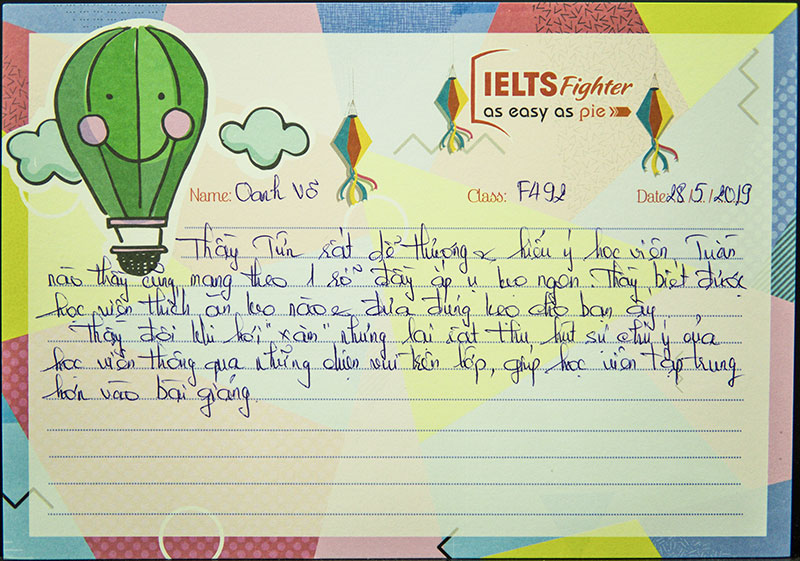 IELTS Fighter
as easy as pie
Name: Oanh Võ Class: F492 Date: 28/5/2019
Thầy Tún rất dễ thương & hiểu ý học viên. Tuần
nào thầy cũng mang theo 1 rổ đầy ắp ụ kẹo ngon. Thầy biết được
học viên thích ăn kẹo nào & đưa đúng kẹo cho bạn ấy.
Thầy đôi khi hơi "xàm" nhưng lại rất thu hút sự chú ý của
học viên thông qua những chuyện vui trên lớp, giúp học viên tập trung
hơn vào bài giảng.